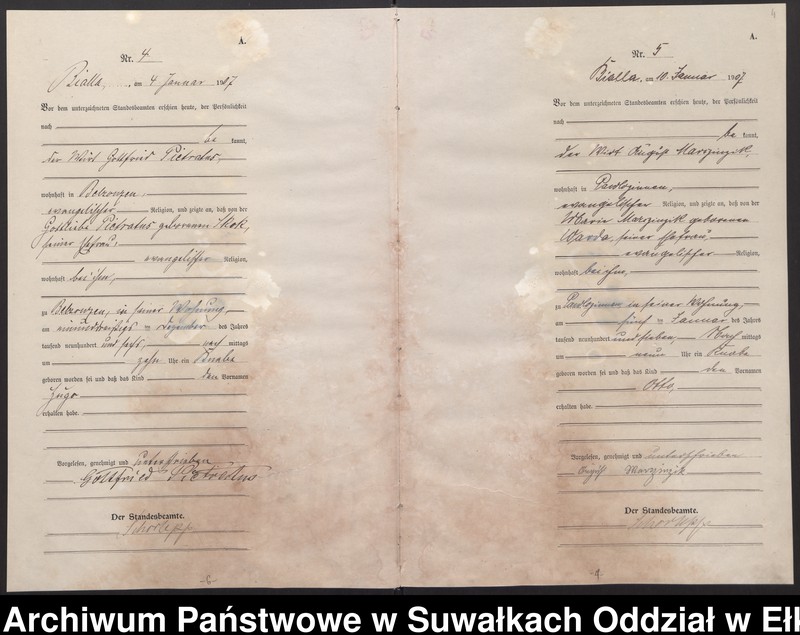 A.
Nr. 4
Bialla, am 4 Januar 1907
Vor dem unterzeichneten Standesbeamten erschien heute, der Persönlichkeit
nach
be kannt,
der Wirt Gottfried Pietratus,
wohnhaft in
evangelischer Religion, und zeigte an, daß von der
Gottliebe Pietratus geborenen
seiner Ehefrau,
evangelischer Religion,
wohnhaft bei ihm,
zu in seiner Wohnung,
am Dezember des Jahres
tausend neunhundert und sechs, nach mittags
um zehn Uhr ein Knabe
geboren worden sei und daß das Kind den Vornamen
Hugo
erhalten habe.
Vorgelesen, genehmigt und unterschrieben
Gottfried Pietratus
Der Standesbeamte.
-6-
4
A.
Nr. 5
Bialla, am 10. Januar 1907
Vor dem unterzeichneten Standesbeamten erschien heute, der Persönlichkeit
nach
be kannt,
der Wirt August Marzinzik,
wohnhaft in
evangelischer Religion, und zeigte an, daß von der
Marie Marzinzik geborenen
Warda, seiner Ehefrau,
evangelischer Religion,
wohnhaft bei ihm,
zu in seiner Wohnung,
am fünf ten Januar des Jahres
tausend neunhundert und sieben, Nach mittags
um neun Uhr ein Knabe
geboren worden sei und daß das Kind den Vornamen
Otto,
erhalten habe.
Vorgelesen, genehmigt und unterschrieben
Marzinzik
Der Standesbeamte.
Archiwum Państwowe w Suwałkach Oddział w Eł